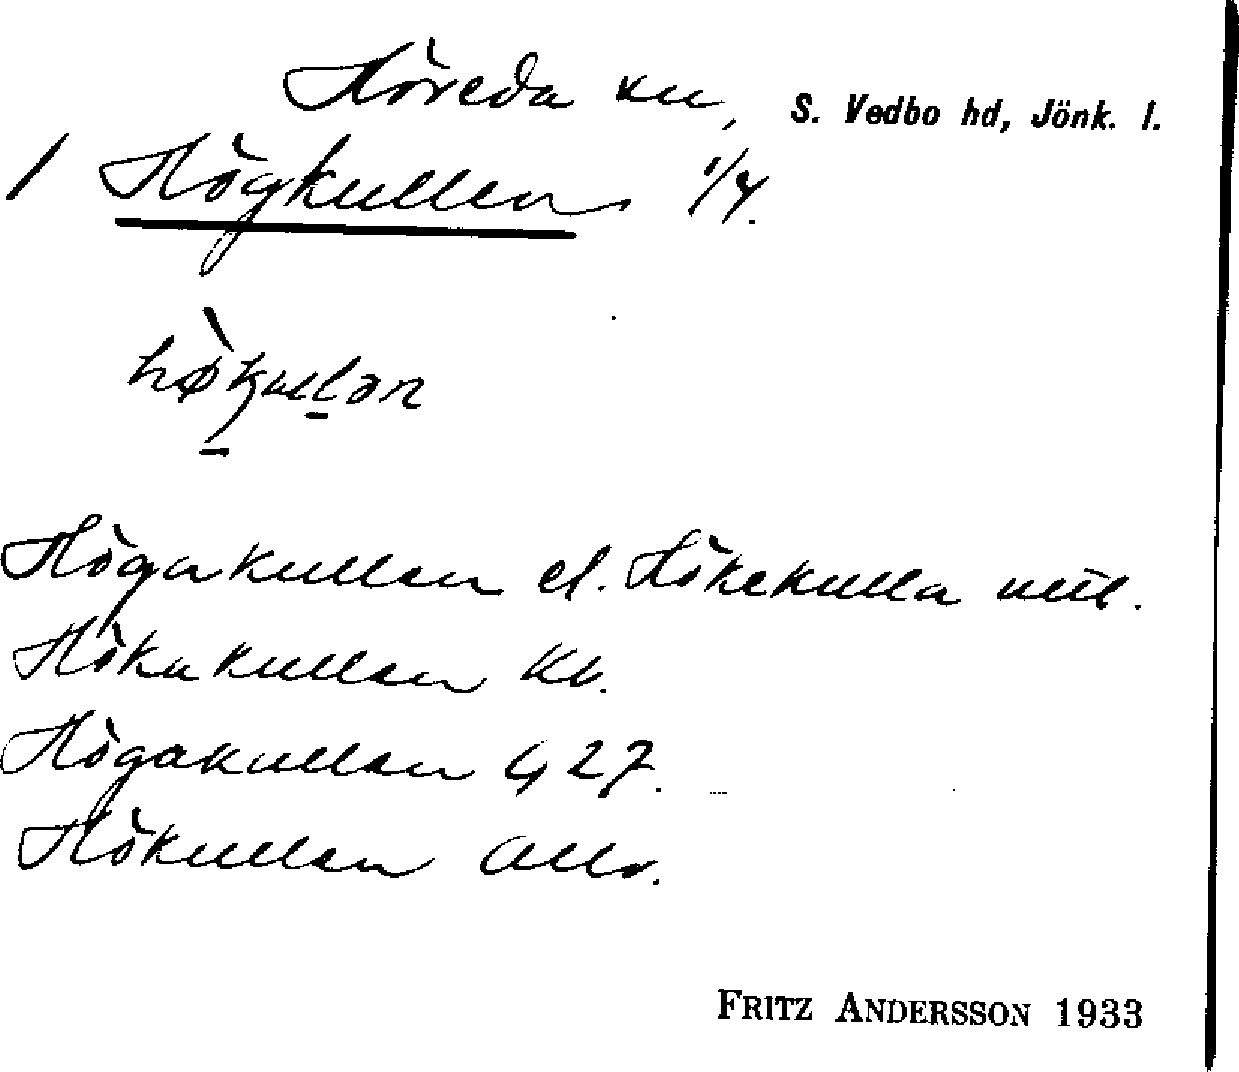 Höreda sn, S. Vedbo hd, Jönk. l.
1 Högkullen 1/4.
hø̀kullən
Högakullen el. Hökekulla
Hökakullen kb.
Högakullen G 27.
Hökullen Allm.
FRITZ ANDERSSON 1933